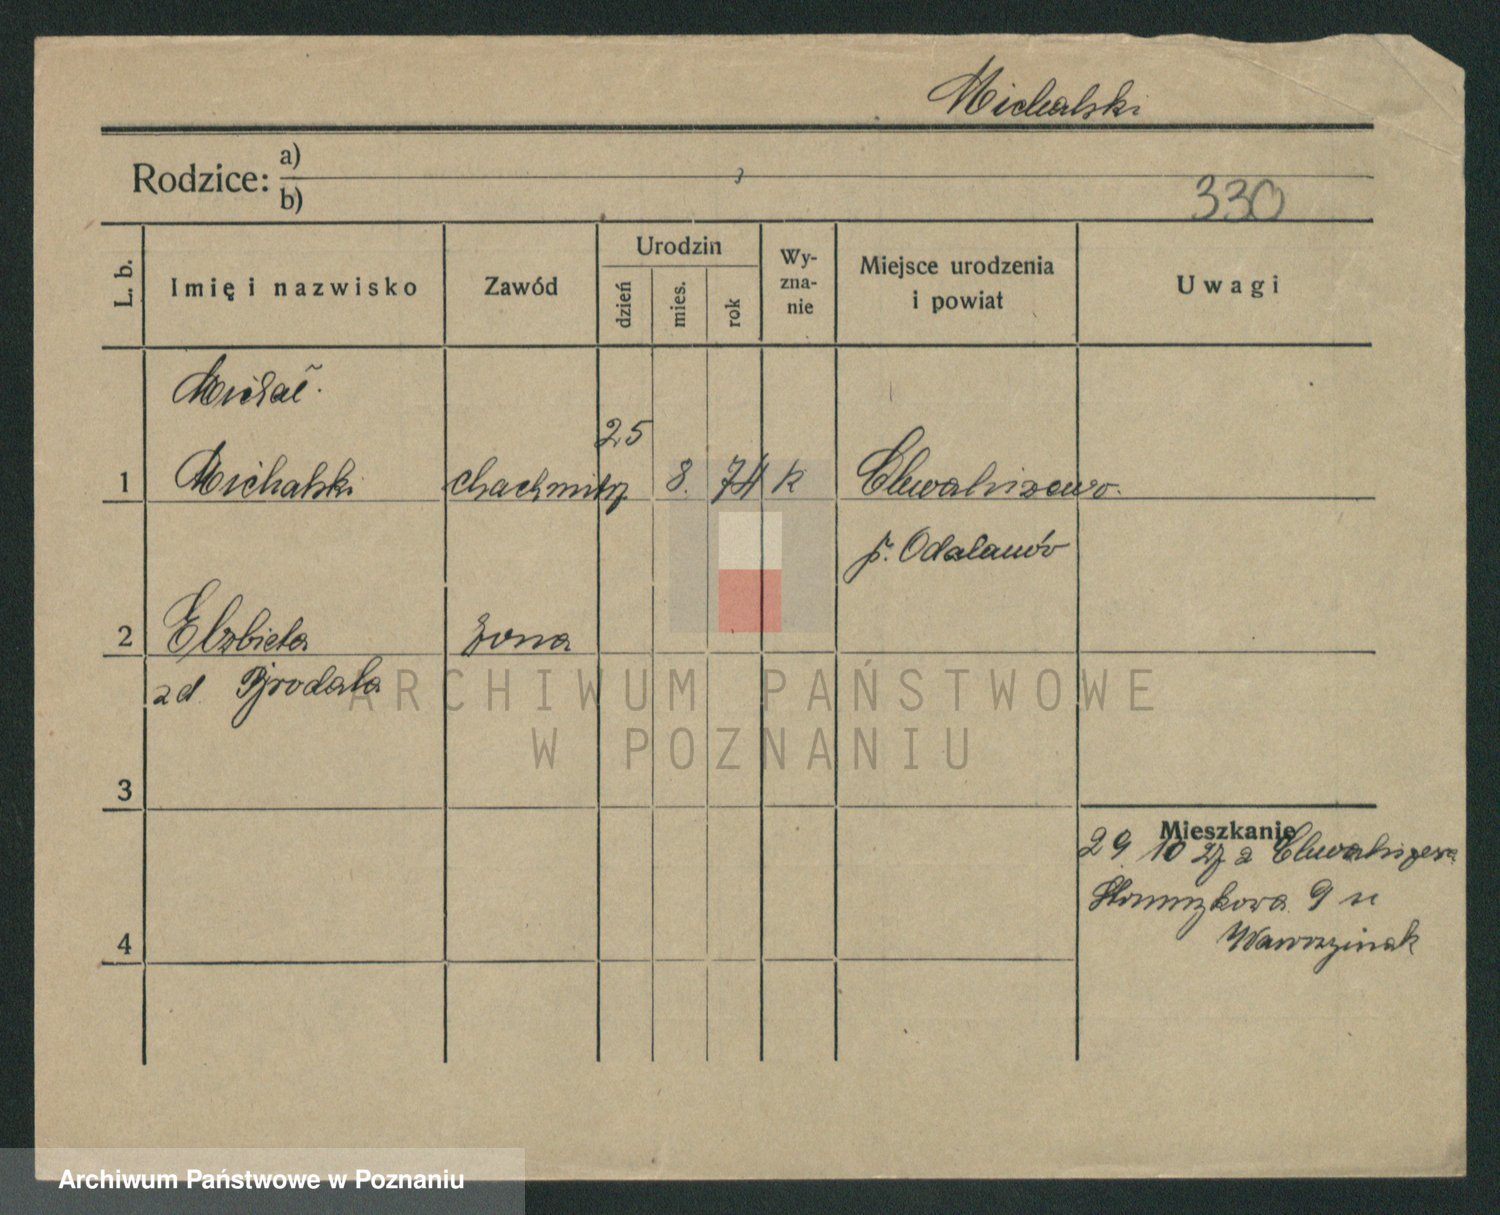 Michalski
Rodzice: a)
b)
330
L. b.
Imię i nazwisko
Zawód
Urodzin
dzień
mies.
rok
Wy-
zna-
nie
Miejsce urodzenia
i powiat
Uwagi
Michał
25
1 Michalski 8. 74 k
p. Odalanów
2 Elzbieta żona
zd.
ARCHIWUM PAŃSTWOWE
W POZNANIU
3
Mieszkanie
29 10 z
9 u
Wawrzyniak
4
Archiwum Państwowe w Poznaniu